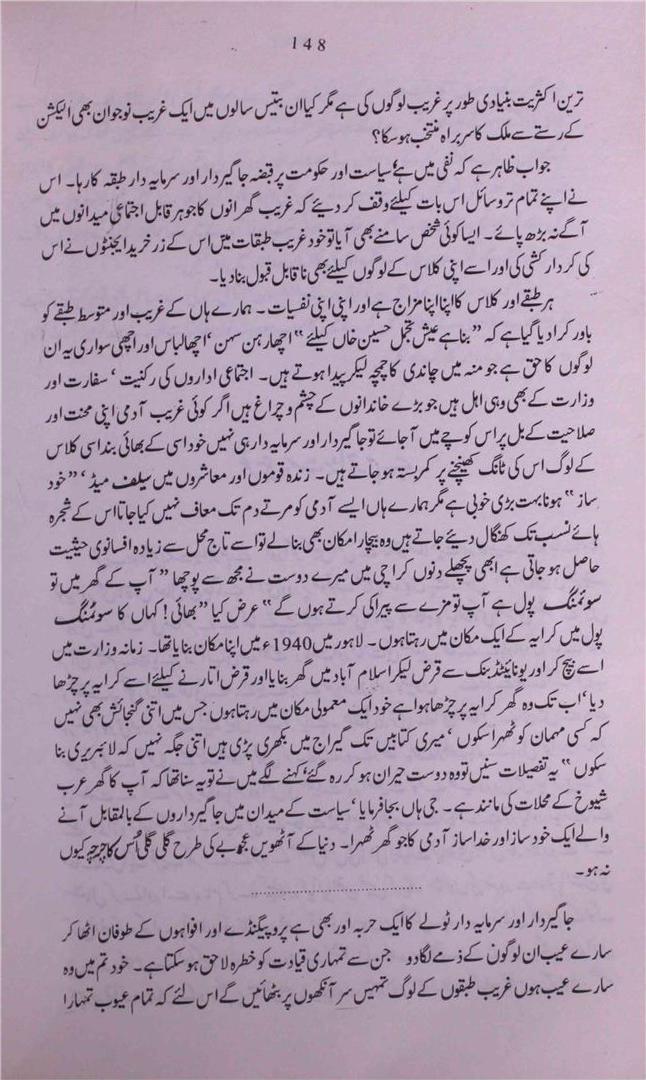 148
ترین اکثریت بنیادی طور پر غریب لوگوں کی ہے مگر کیا ان بتیس سالوں میں ایک غریب نوجوان بھی الیکشن
کے رستے سے ملک کا سربراہ منتخب ہو سکا؟
جواب ظاہر ہے کہ نفی میں ہے‘ سیاست اور حکومت پر قبضہ جاگیردار اور سرمایہ دار طبقہ کا رہا۔ اس
نے اپنے تمام تر وسائل اس بات کیلئے وقف کر دیئے کہ غریب گھرانوں کا جوہر قابل اجتماعی میدانوں میں
آگے نہ بڑھ پائے۔ ایسا کوئی شخص سامنے بھی آیا تو خود غریب طبقات میں اس کے زر خرید ایجنٹوں نے اس
کی کردار کشی کی اور اسے اپنی کلاس کے لوگوں کیلئے بھی ناقابل قبول بنا دیا۔
ہر طبقے اور کلاس کا اپنا اپنا مزاج ہے اور اپنی اپنی نفسیات۔ ہمارے ہاں کے غریب اور متوسط طبقے کو
باور کرا دیا گیا ہے کہ ”بنا ہے عیش تجمل حسین خاں کیلئے“ اچھا رہن سہن‘ اچھا لباس اور اچھی سواری یہ ان
لوگوں کا حق ہے جو منہ میں چاندی کا چمچہ لیکر پیدا ہوتے ہیں۔ اجتماعی اداروں کی رکنیت‘ سفارت اور
وزارت کے بھی وہی اہل ہیں جو بڑے خاندانوں کے چشم و چراغ ہیں اگر کوئی غریب آدمی اپنی محنت اور
صلاحیت کے بل پر اس کوچے میں آ جائے تو جاگیردار اور سرمایہ دار ہی نہیں خود اسی کے بھائی بند اسی کلاس
کے لوگ اس کی ٹانگ کھینچنے پر کمربستہ ہو جاتے ہیں۔ زندہ قوموں اور معاشروں میں سیلف میڈ‘ ”خود
ساز“ ہونا بہت بڑی خوبی ہے مگر ہمارے ہاں ایسے آدمی کو مرتے دم تک معاف نہیں کیا جاتا اس کے شجرہ
ہائے نسب تک کھنگال دیئے جاتے ہیں وہ بیچارا مکان بھی بنا لے تو اسے تاج محل سے زیادہ افسانوی حیثیت
حاصل ہو جاتی ہے ابھی پچھلے دنوں کراچی میں میرے دوست نے مجھ سے پوچھا ”آپ کے گھر میں تو
سوئمنگ پول ہے آپ تو مزے سے پیراکی کرتے ہوں گے“ عرض کیا ”بھائی! کہاں کا سوئمنگ
پول میں کرایہ کے ایک مکان میں رہتا ہوں۔ لاہور میں 1940ء میں اپنا مکان بنایا تھا۔ زمانہ وزارت میں
اسے بیچ کر اور یونائیٹڈ بنک سے قرض لیکر اسلام آباد میں گھر بنایا اور قرض اتارنے کیلئے اسے کرایہ پر چڑھا
دیا‘ اب تک وہ گھر کرایہ پر چڑھا ہوا ہے خود ایک معمولی مکان میں رہتا ہوں جس میں اتنی گنجائش بھی نہیں
کہ کسی مہمان کو ٹھہرا سکوں‘ میری کتابیں تک گیراج میں بکھری پڑی ہیں اتنی جگہ نہیں کہ لائبریری بنا
سکوں“ یہ تفصیلات سنیں تو وہ دوست حیران ہو کر رہ گئے‘ کہنے لگے میں نے تو یہ سنا تھا کہ آپ کا گھر عرب
شیوخ کے محلات کی مانند ہے۔ جی ہاں بجا فرمایا‘ سیاست کے میدان میں جاگیرداروں کے بالمقابل آنے
والے ایک خود ساز اور خدا ساز آدمی کا جو گھر ٹھہرا۔ دنیا کے آٹھویں عجوبے کی طرح گلی گلی اُس کا چرچہ کیوں
نہ ہو۔
جاگیردار اور سرمایہ دار ٹولے کا ایک حربہ اور بھی ہے پروپیگنڈے اور افواہوں کے طوفان اٹھا کر
سارے عیب ان لوگوں کے ذمے لگا دو جن سے تمہاری قیادت کو خطرہ لاحق ہو سکتا ہے۔ خود تم میں وہ
سارے عیب ہوں غریب طبقوں کے لوگ تمہیں سر آنکھوں پر بٹھائیں گے اس لئے کہ تمام عیوب تمہارا